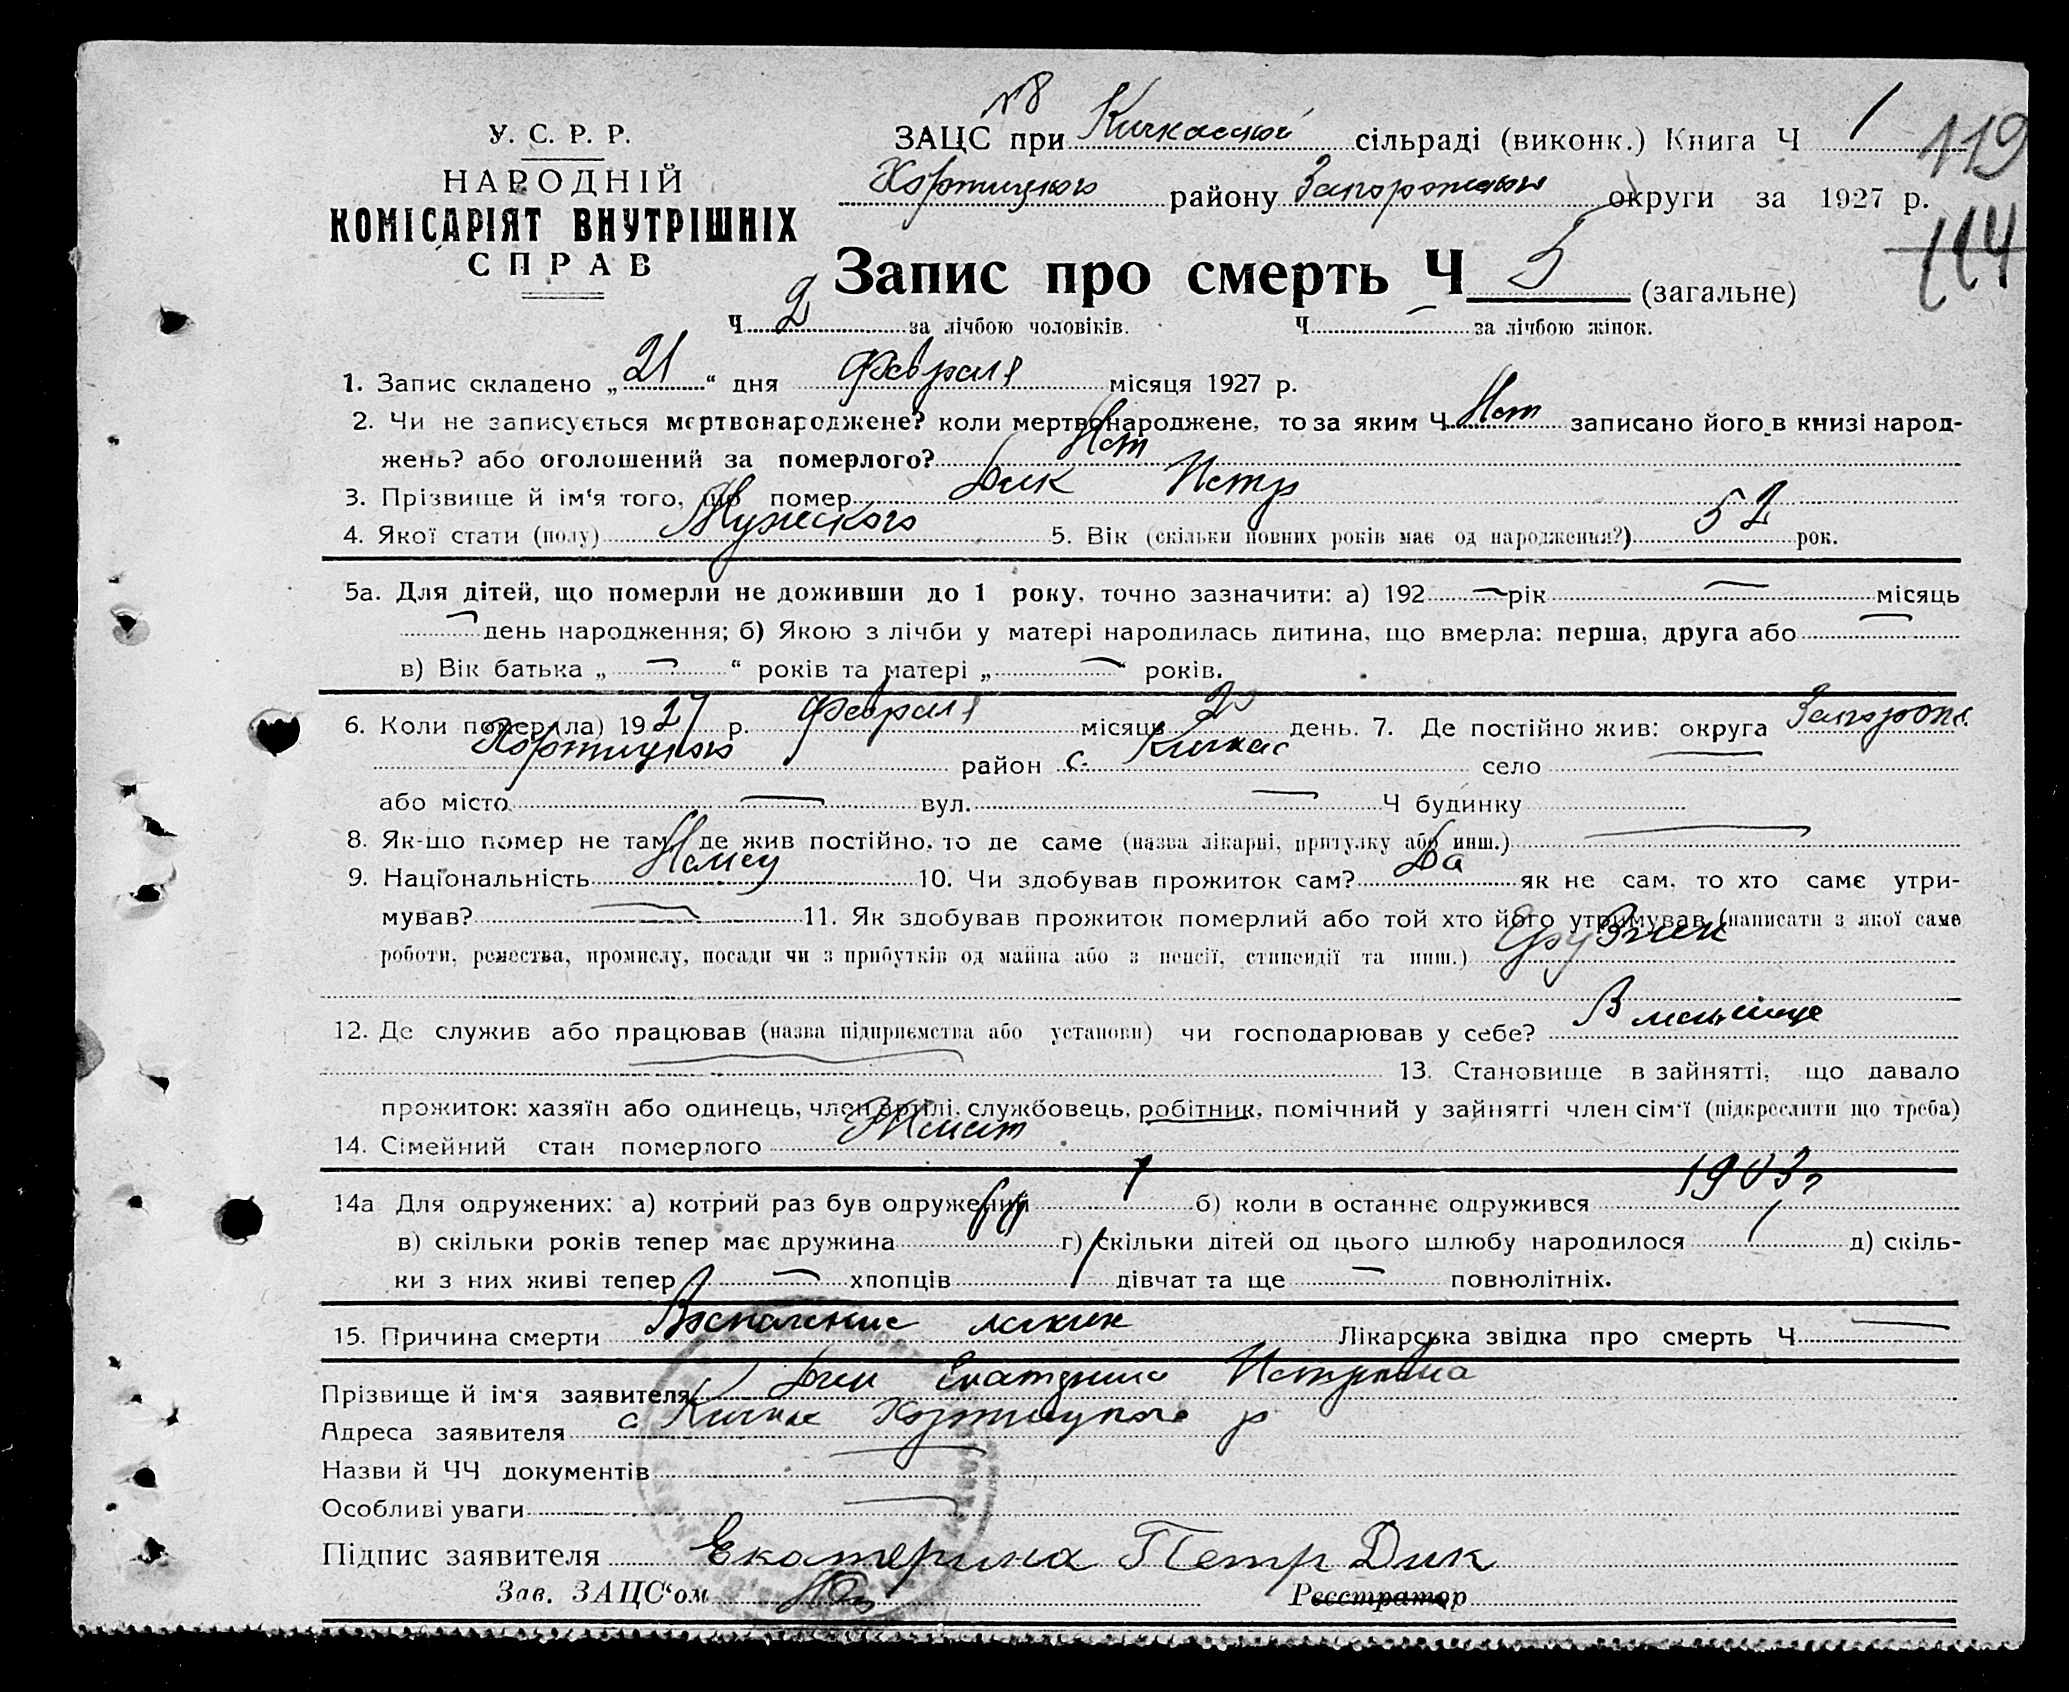 № 8
У. С. Р. Р.
НАРОДНІЙ
КОМІСАРІЯТ ВНУТРІШНІХ
СПРАВ
ЗАЦС при Кичкасской сільраді (виконк.) Книга Ч 1
119
Хортицкого району Запорожской округи за 1927 р.
114
Запис про смерть Ч 5 (загальне)
Ч 2 за лічбою чоловіків. Ч — за лічбою жінок.
1. Запис складено „21“ дня Февраля місяця 1927 р.
2. Чи не записується мертвонароджене? коли мертвонароджене, то за яким Ч Нет записано його в книзі народ-
жень? або оголошений за померлого? Нет
3. Прізвище й ім'я того, що помер Дик Петр
4. Якої стати (полу) Мужеского 5. Вік (скільки повних років має од народження?) 52 рок.
5а. Для дітей, що померли не доживши до 1 року, точно зазначити: а) 192 — рік — місяць
— день народження; б) Якою з лічби у матері народилась дитина, що вмерла: перша, друга або —
в) Вік батька „ — “ років та матері „ — “ років.
6. Коли помер(ла) 1927 р. Февраля місяць 20 день. 7. Де постійно жив: округа Запорож.
Хортицкого район с. Кичкас село —
або місто — вул. — Ч будинку
8. Як-що помер не там, де жив постійно, то де саме (назва лікарні, притулку або инш.) —
9. Національність Немец 10. Чи здобував прожиток сам? Да як не сам, то хто саме утри-
мував? — 11. Як здобував прожиток померлий або той хто його утримував (написати з якої саме
роботи, ремества, промислу, посади чи з прибутків од майна або з пенсії, стипендії та инш.) Грузчик
12. Де служив або працював (назва підприємства або установи) чи господарював у себе? В мельнице
— 13. Становище в зайнятті, що давало
прожиток: хазяїн або одинець, член артілі, службовець, робітник, помічний у зайнятті член сім'ї (підкреслити що треба)
14. Сімейний стан померлого Женат
14а Для одружених: а) котрий раз був одружений 1 б) коли в останнє одружився 1903 г
в) скільки років тепер має дружина г) скільки дітей од цього шлюбу народилося 1 д) скіль-
ки з них живі тепер — хлопців 1 дівчат та ще — повнолітніх.
15. Причина смерти Воспаление легких Лікарська звідка про смерть Ч —
Прізвище й ім'я заявителя Дик Екатерина Петровна
Адреса заявителя с Кичкас Хортицкого р
Назви й ЧЧ документів —
Особливі уваги —
Підпис заявителя Екатерина Петр Дик
Зав. ЗАЦС'ом Реєстратор